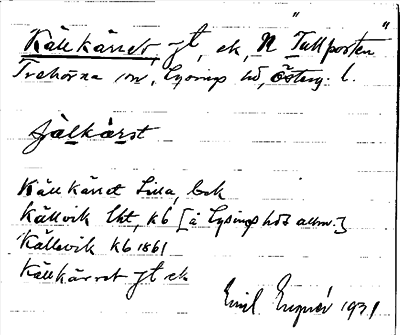 Källkärret, jt, ek, N "Tullporten"
Trehörna sn, Lysings hd, Österg. l.
jä̀lkä̀rst
Källkärret Lilla, bek
Källvik lht, kb [å Lysings hds allm.]
Källevik kb 1861
Källkärret jt ek
Emil Enqvér 1931